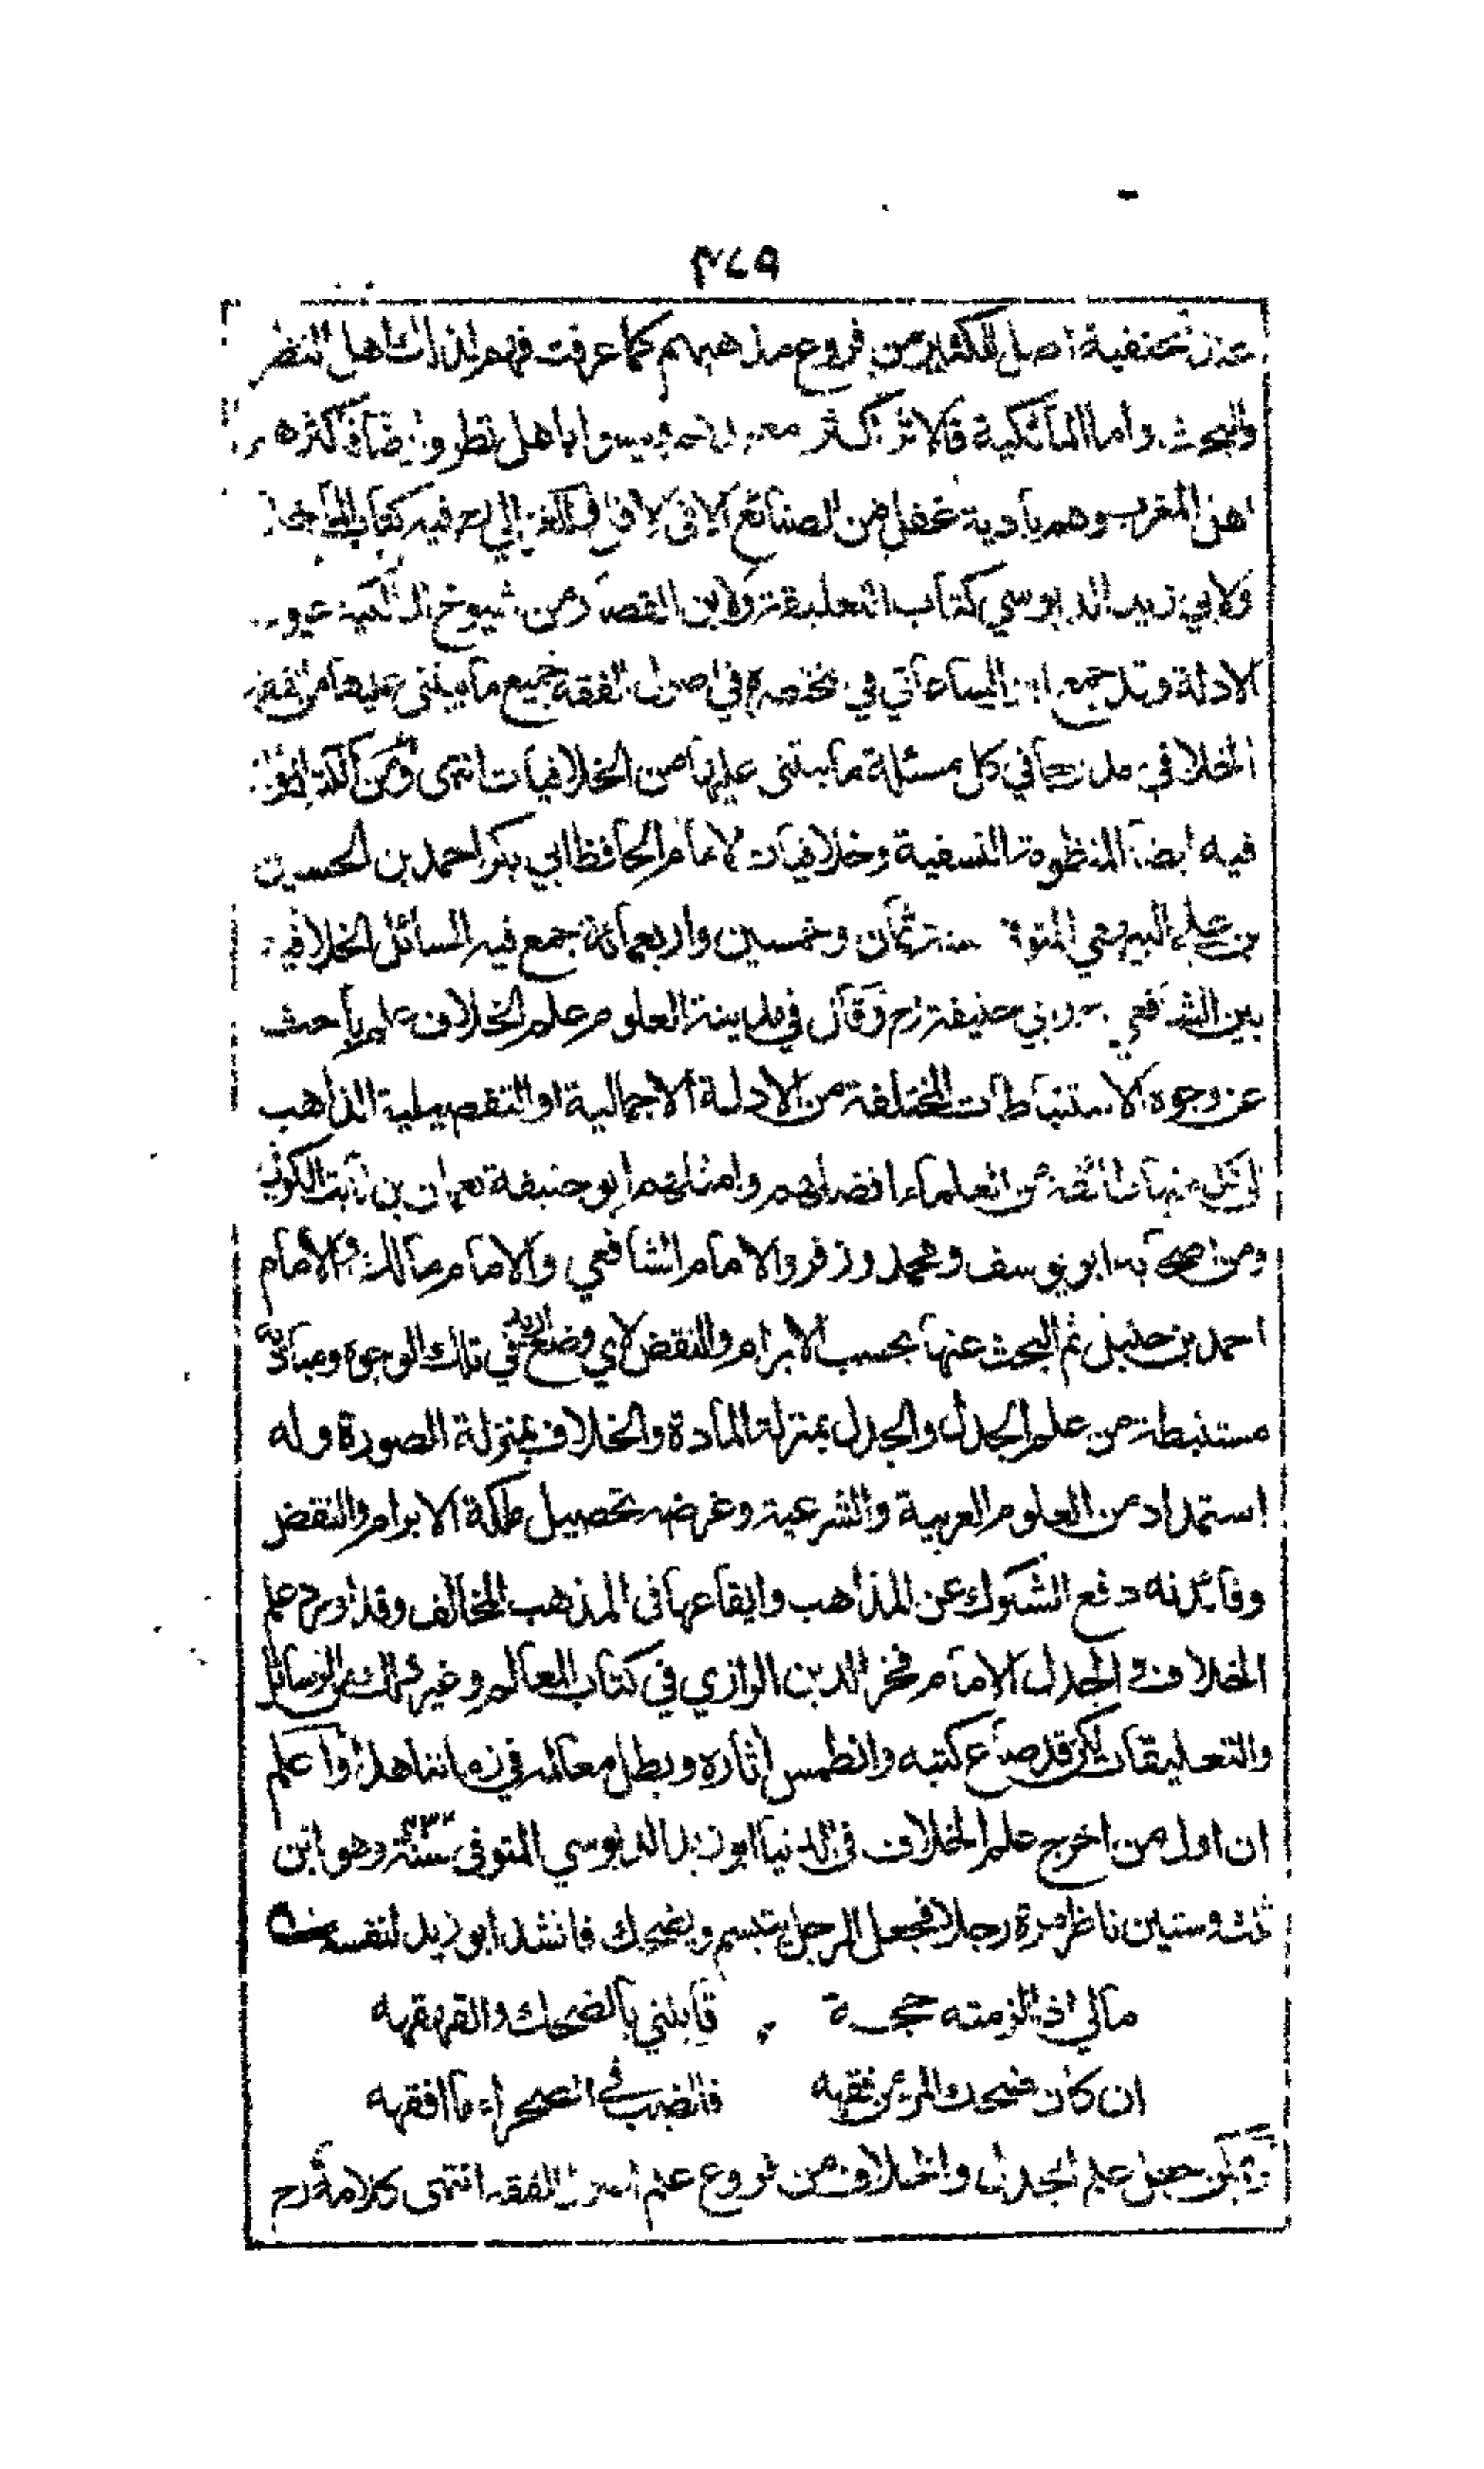 ٣٧٩
عند الحنفية اصل للكثير من فروع مذهبهم كما عرفت فهم لذلك اهل النظر
والبحث واما المالكية فالاثر اكثر معتمدهم وليسوا باهل نظر وايضا فاكثرهم
اهل المغرب وهم بادية غفل من الصنائع الا في الاقل وللغزالي رح فيه كتاب المآخذ
ولابي زيد الدبوسي كتاب التعليقة ولابن القصار من شيوخ المالكية عيون
الادلة وقد جمع ابن الساعاتي في مختصره في اصول الفقه جميع ما يبتنى عليها من الفقه
الخلافي مدرجا في كل مسئلة ما يبتنى عليها من الخلافيات انتهى ومن الكتب المؤلفة
فيه ايضا المنظومة النسفية وخلافيات الامام الحافظ ابي بكر احمد بن الحسين
بن علي البيهقي المتوفى سنة ثمان وخمسين واربعمائة جمع فيه المسائل الخلافية
بين الشافعي رح وابي حنيفة رح وقال في مدينة العلوم علم الخلاف علم باحث
عن وجوه الاستنباطات المختلفة من الادلة الاجمالية او التفصيلية الذاهب
الى كل منها طائفة من العلماء افضلهم وامثلهم ابو حنيفة نعمان بن ثابت الكوفي
ومن اصحابه ابو يوسف ومحمد وزفر والامام الشافعي والامام مالك والامام
احمد بن حنبل ثم البحث عنها بحسب الابرام والنقض لاي وضع اريد في تلك الوجوه ومباديه
مستنبطة من علم الجدل والجدل بمنزلة المادة والخلاف بمنزلة الصورة وله
استمداد من العلوم العربية والشرعية وغرضه تحصيل ملكة الابرام والنقض
وفائدته دفع الشكوك عن المذاهب وايقاعها في المذهب المخالف وقد اورد علم
الخلاف والجدل الامام فخر الدين الرازي في كتاب المعالم وغير ذلك من الرسائل
والتعليقات لكن قد ضاع كتبه وانطمس اثاره وبطل معالمه في زماننا هذا واعلم
ان اول من اخرج علم الخلاف في الدنيا ابو زيد الدبوسي المتوفى سنة ٤٣٢ وهو ابن
ثلث وستين ناظر مرة رجلا فجعل الرجل يتبسم ويضحك فانشد ابو زيد لنفسه
مالي اذا الزمته حجة قابلني بالضحك والقهقهه
ان كان ضحك المرء من فقهه فالضب في الصحراء ما افقهه
ويمكن جعل علم الجدل والخلاف من فروع علم اصول الفقه انتهى كلامه رح